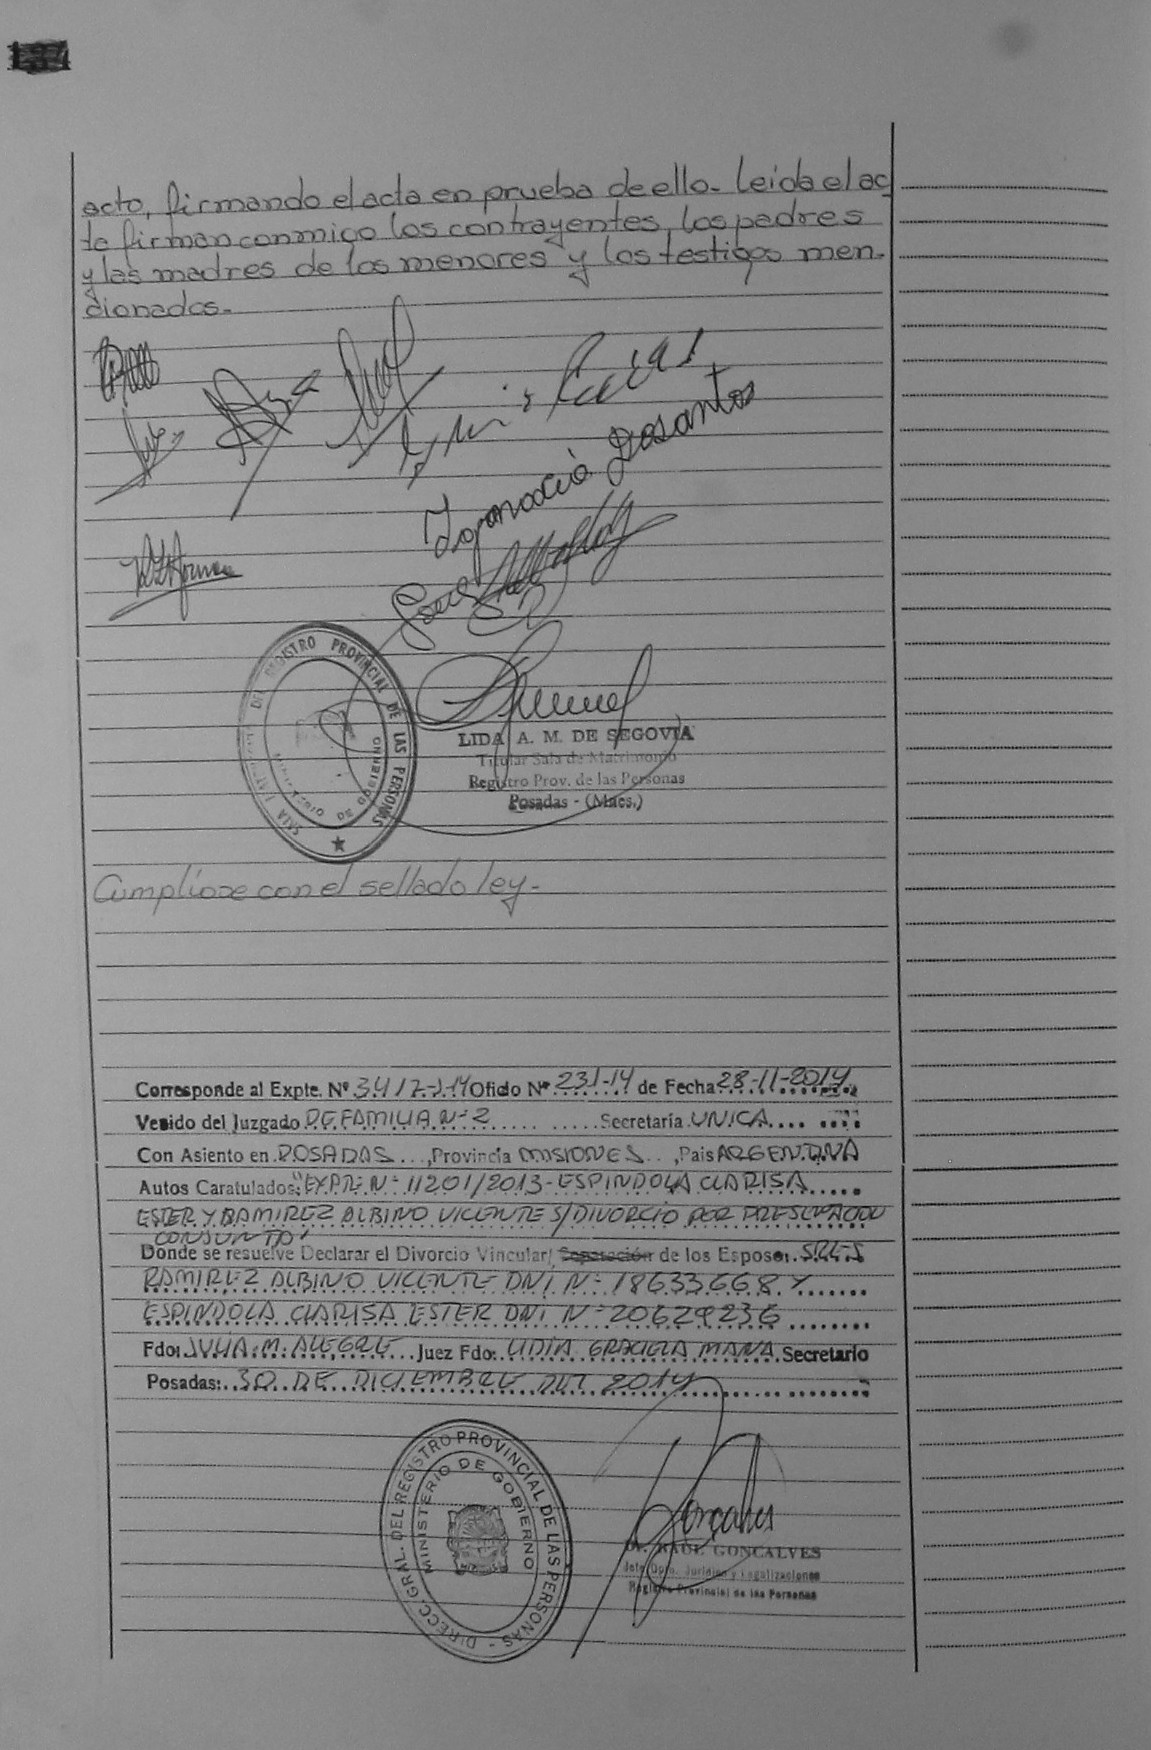 acto, firmando el acta en prueba de ello- Leida el ac
ta firman conmigo los contrayentes, los padres
y las madres de los menores y los testigos men-
cionados-
Luis
Ignacio Dosantos
José
DEL REGISTRO PROVINCIAL DE LAS PERSONAS
MINISTERIO DE GOBIERNO
LIDA A. M. DE SEGOVIA
Titular Sala de Matrimonio
Registro Prov. de las Personas
Posadas - (Mnes.)
Cumplióse con el sellado ley-
Corresponde al Expte. Nº 3417-J-14 Oficio Nº 231-14 de Fecha 28-11-2014
Venido del Juzgado DE FAMILIA Nº 2 Secretaría UNICA
Con Asiento en POSADAS, Provincia MISIONES, Pais ARGENTINA
Autos Caratulados: "EXPTE Nº 11201/2013-ESPINDOLA CLARISA
ESTER Y RAMIREZ ALBINO VICENTE S/DIVORCIO POR PRESENTACION
CONJUNTO"
Donde se resuelve Declarar el Divorcio Vincular/ Separación de los Esposos: SRES
RAMIREZ ALBINO VICENTE DNI Nº 18633668 Y
ESPINDOLA CLARISA ESTER DNI Nº 20629236
Fdo: JULIA M. ALEGRE Juez Fdo: LIDIA GRACIELA Secretario
Posadas: 30 DE DICIEMBRE DEL 2014
DIRECC. GRAL. DEL REGISTRO PROVINCIAL DE LAS PERSONAS
MINISTERIO DE GOBIERNO
Dr. RAUL GONCALVES
Jefe Dpto. Jurídico y Legalizaciones
Registro Provincial de las Personas